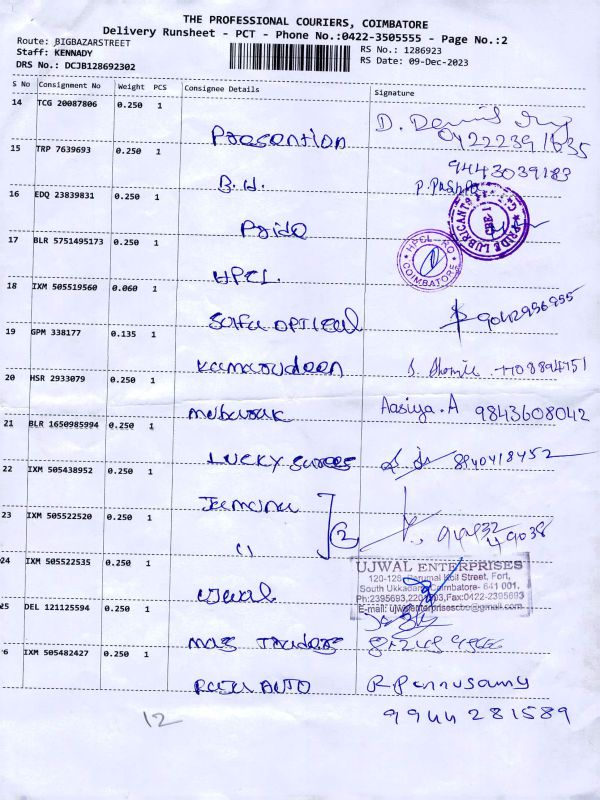 THE PROFESSIONAL COURIERS, COIMBATORE
Delivery Runsheet - PCT - Phone No.:0422-3505555 - Page No.:2
Route: BIGBAZARSTREET
Staff: KENNADY
DRS No.: DCJB128692302
RS No.: 1286923
RS Date: 09-Dec-2023
S No Consignment No Weight PCS Consignee Details Signature
14 TCG 20087806 0.250 1 Presention
15 TRP 7639693 0.250 1 B.H. 9443039183
P. PUSHPA
16 EDQ 23839831 0.250 1 Pride
PRIDE LUBRICANTS
17 BLR 5751495173 0.250 1 HPCL
HPCL-RO
COIMBATORE
18 IXM 505519560 0.060 1 Safa OPTICAL
19 GPM 338177 0.135 1 Kamarudeen
20 HSR 2933079 0.250 1 Mubarak Aasiya.A 9843608042
21 BLR 1650985994 0.250 1 LUCKY
22 IXM 505438952 0.250 1 Jamuna
23 IXM 505522520 0.250 1 " 2
24 IXM 505522535 0.250 1 Ujwal
UJWAL ENTERPRISES
Street, Fort,
South Ukkadam, Coimbatore- 641 001.
Fax:0422-2395693
25 DEL 121125594 0.250 1 Traders
6 IXM 505482427 0.250 1 Raju AUTO R. Ponnusamy
9944281589
12